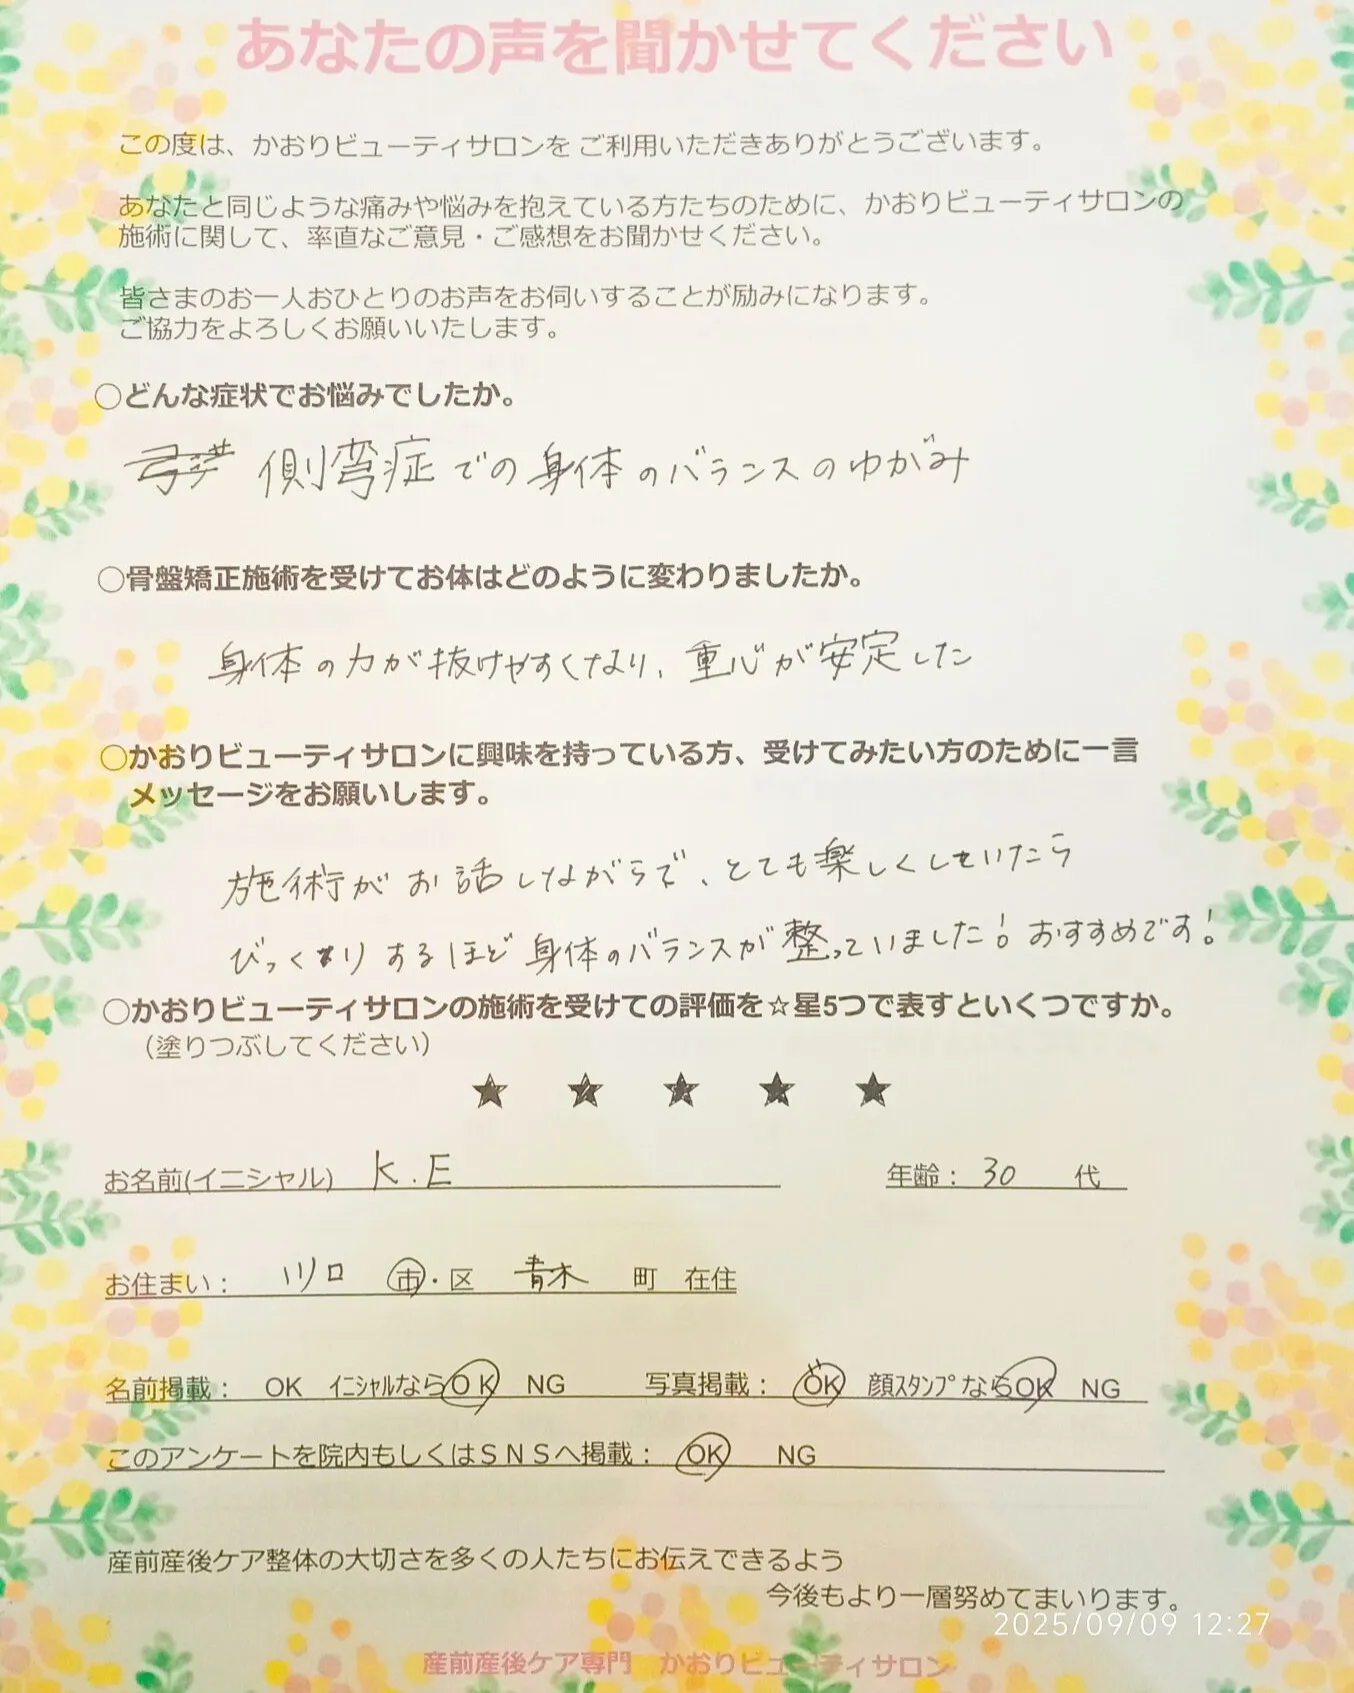 あなたの声を聞かせてください
この度は、かおりビューティサロンを ご利用いただきありがとうございます。
あなたと同じような痛みや悩みを抱えている方たちのために、かおりビューティサロンの
施術に関して、率直なご意見・ご感想をお聞かせください。
皆さまのお一人おひとりのお声をお伺いすることが励みになります。
ご協力をよろしくお願いいたします。
○どんな症状でお悩みでしたか。
側弯症での身体のバランスのゆがみ
○骨盤矯正施術を受けてお体はどのように変わりましたか。
身体の力が抜けやすくなり、重心が安定した
○かおりビューティサロンに興味を持っている方、受けてみたい方のために一言
メッセージをお願いします。
施術がお話しながらで、とても楽しくしていたら
びっくりするほど身体のバランスが整っていました!おすすめです!
○かおりビューティサロンの施術を受けての評価を☆星5つで表すといくつですか。
（塗りつぶしてください）
★ ★ ★ ★ ★
お名前(イニシャル) K.E 年齢： 30 代
お住まい： 川口 市・区 青木 町 在住
名前掲載： OK イニシャルならOK NG 写真掲載： OK 顔スタンプならOK NG
このアンケートを院内もしくはSNSへ掲載： OK NG
産前産後ケア整体の大切さを多くの人たちにお伝えできるよう
今後もより一層努めてまいります。
2025/09/09 12:27
産前産後ケア専門 かおりビューティサロン